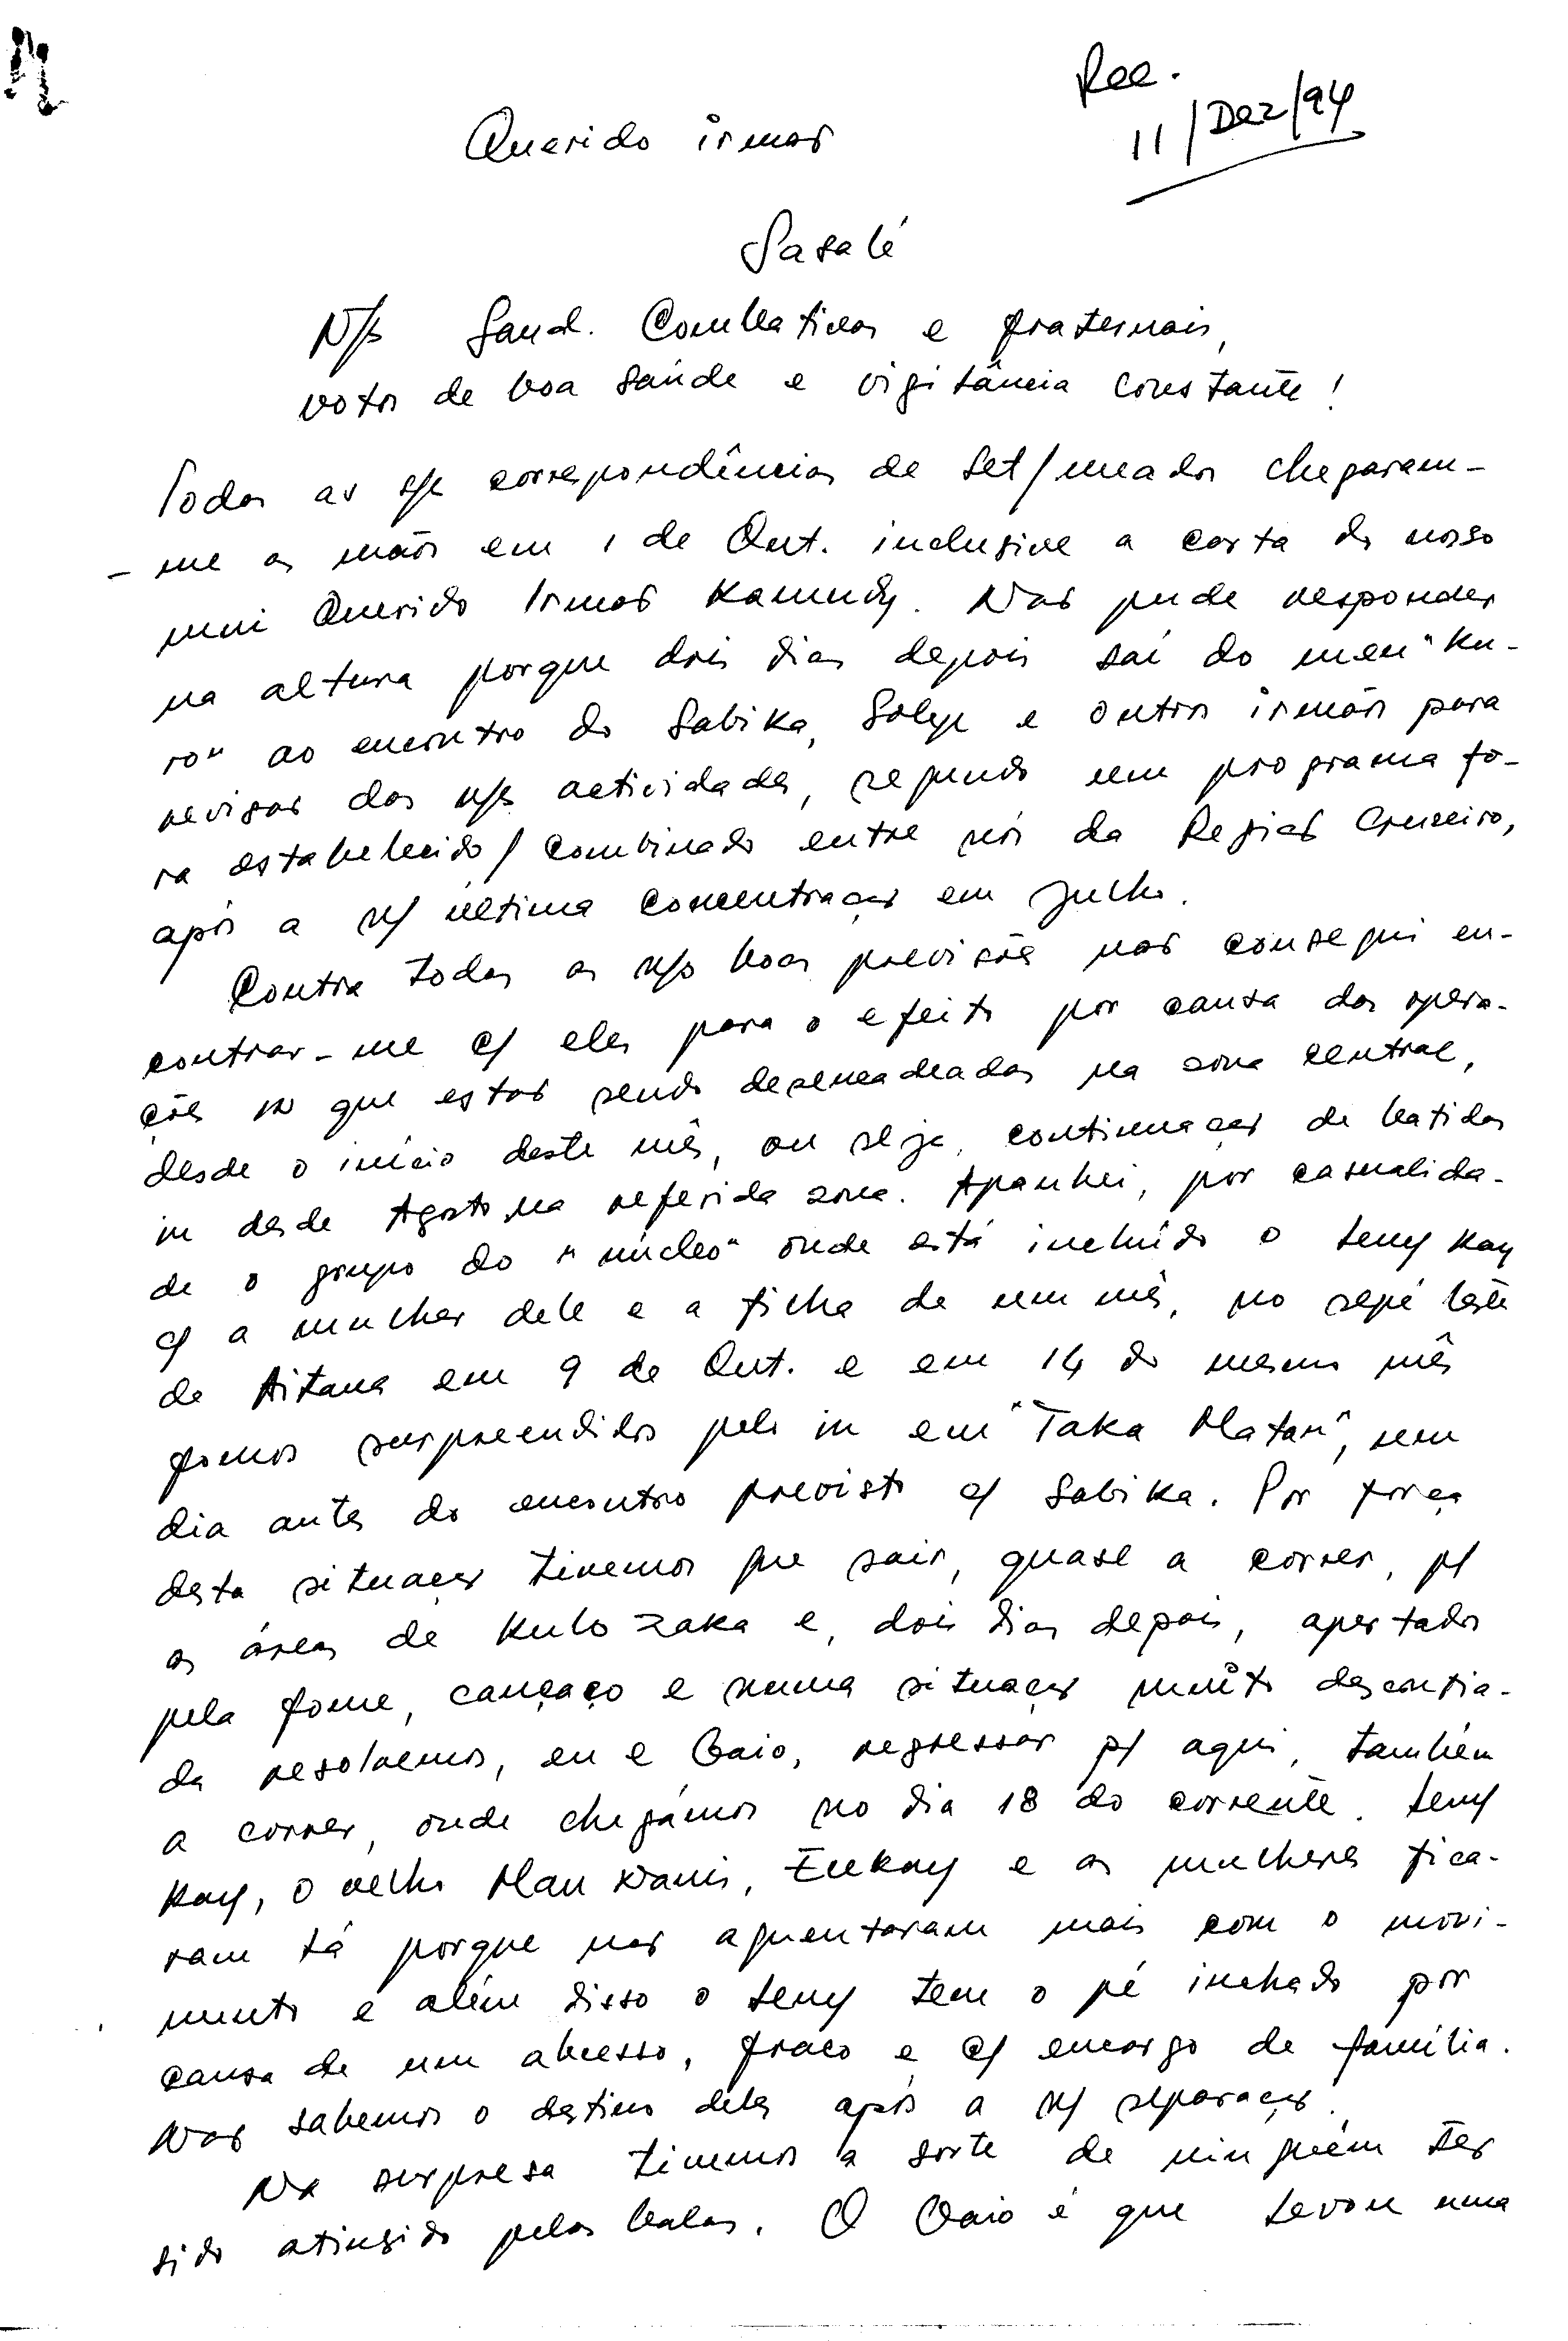 Rec.
11/Dez/94
Querido irmão
Sasalé
N/s Saud. Combativas e fraternais,
votos de boa saúde e vigilância constante!
Todas as s/s correspondências de Set/meados chegaram-
-me as mãos em 1 de Out. inclusive a carta do nosso
mui Querido Irmão Kamudy. Não pude responder
na altura porque dois dias depois saí do meu "Ku-
ro" ao encontro do Sabika, Solep e outros irmãos para
revisar das n/s actividades, segundo um programa fo-
ra estabelecido/combinado entre nós da Região Cruzeiro,
após a n/ última concentração em Julho.
Contra todas as n/s boas previsões não consegui en-
contrar-me c/ eles para o efeito por causa das opera-
ções in que estão sendo desencadeadas na zona central,
desde o início deste mês, ou seja, continuação de batidas
in desde Agosto na referida zona. Apanhei, por casualida-
de o grupo do "núcleo" onde está incluído o Leny Kay
c/ a mulher dele e a filha de um mês, no sopé leste
de Aitana em 9 de Out. e em 14 do mesmo mês
fomos surpreendidos pelo in em "Taka Matan", um
dia antes do encontro previsto c/ Sabika. Por força
desta situação tivemos que sair, quase a correr, p/
as áreas de Kulo Zaka e, dois dias depois, apertados
pela fome, cançaço e numa situação muito desconfia-
da resolvemos, eu e Oaio, regressar p/ aqui, também
a correr, onde chegámos no dia 18 do corrente. Leny
Kay, o velho Mau Wanis, Eukay e as mulheres fica-
ram lá porque não aguentaram mais com o movi-
mento e além disso o Leny tem o pé inchado por
causa de um abcesso, fraco e c/ encargo de família.
Não sabemos o destino deles após a n/ separação.
Na surpresa tivemos a sorte de ninguém ter
sido atingido pelas balas. O Oaio é que levou uma